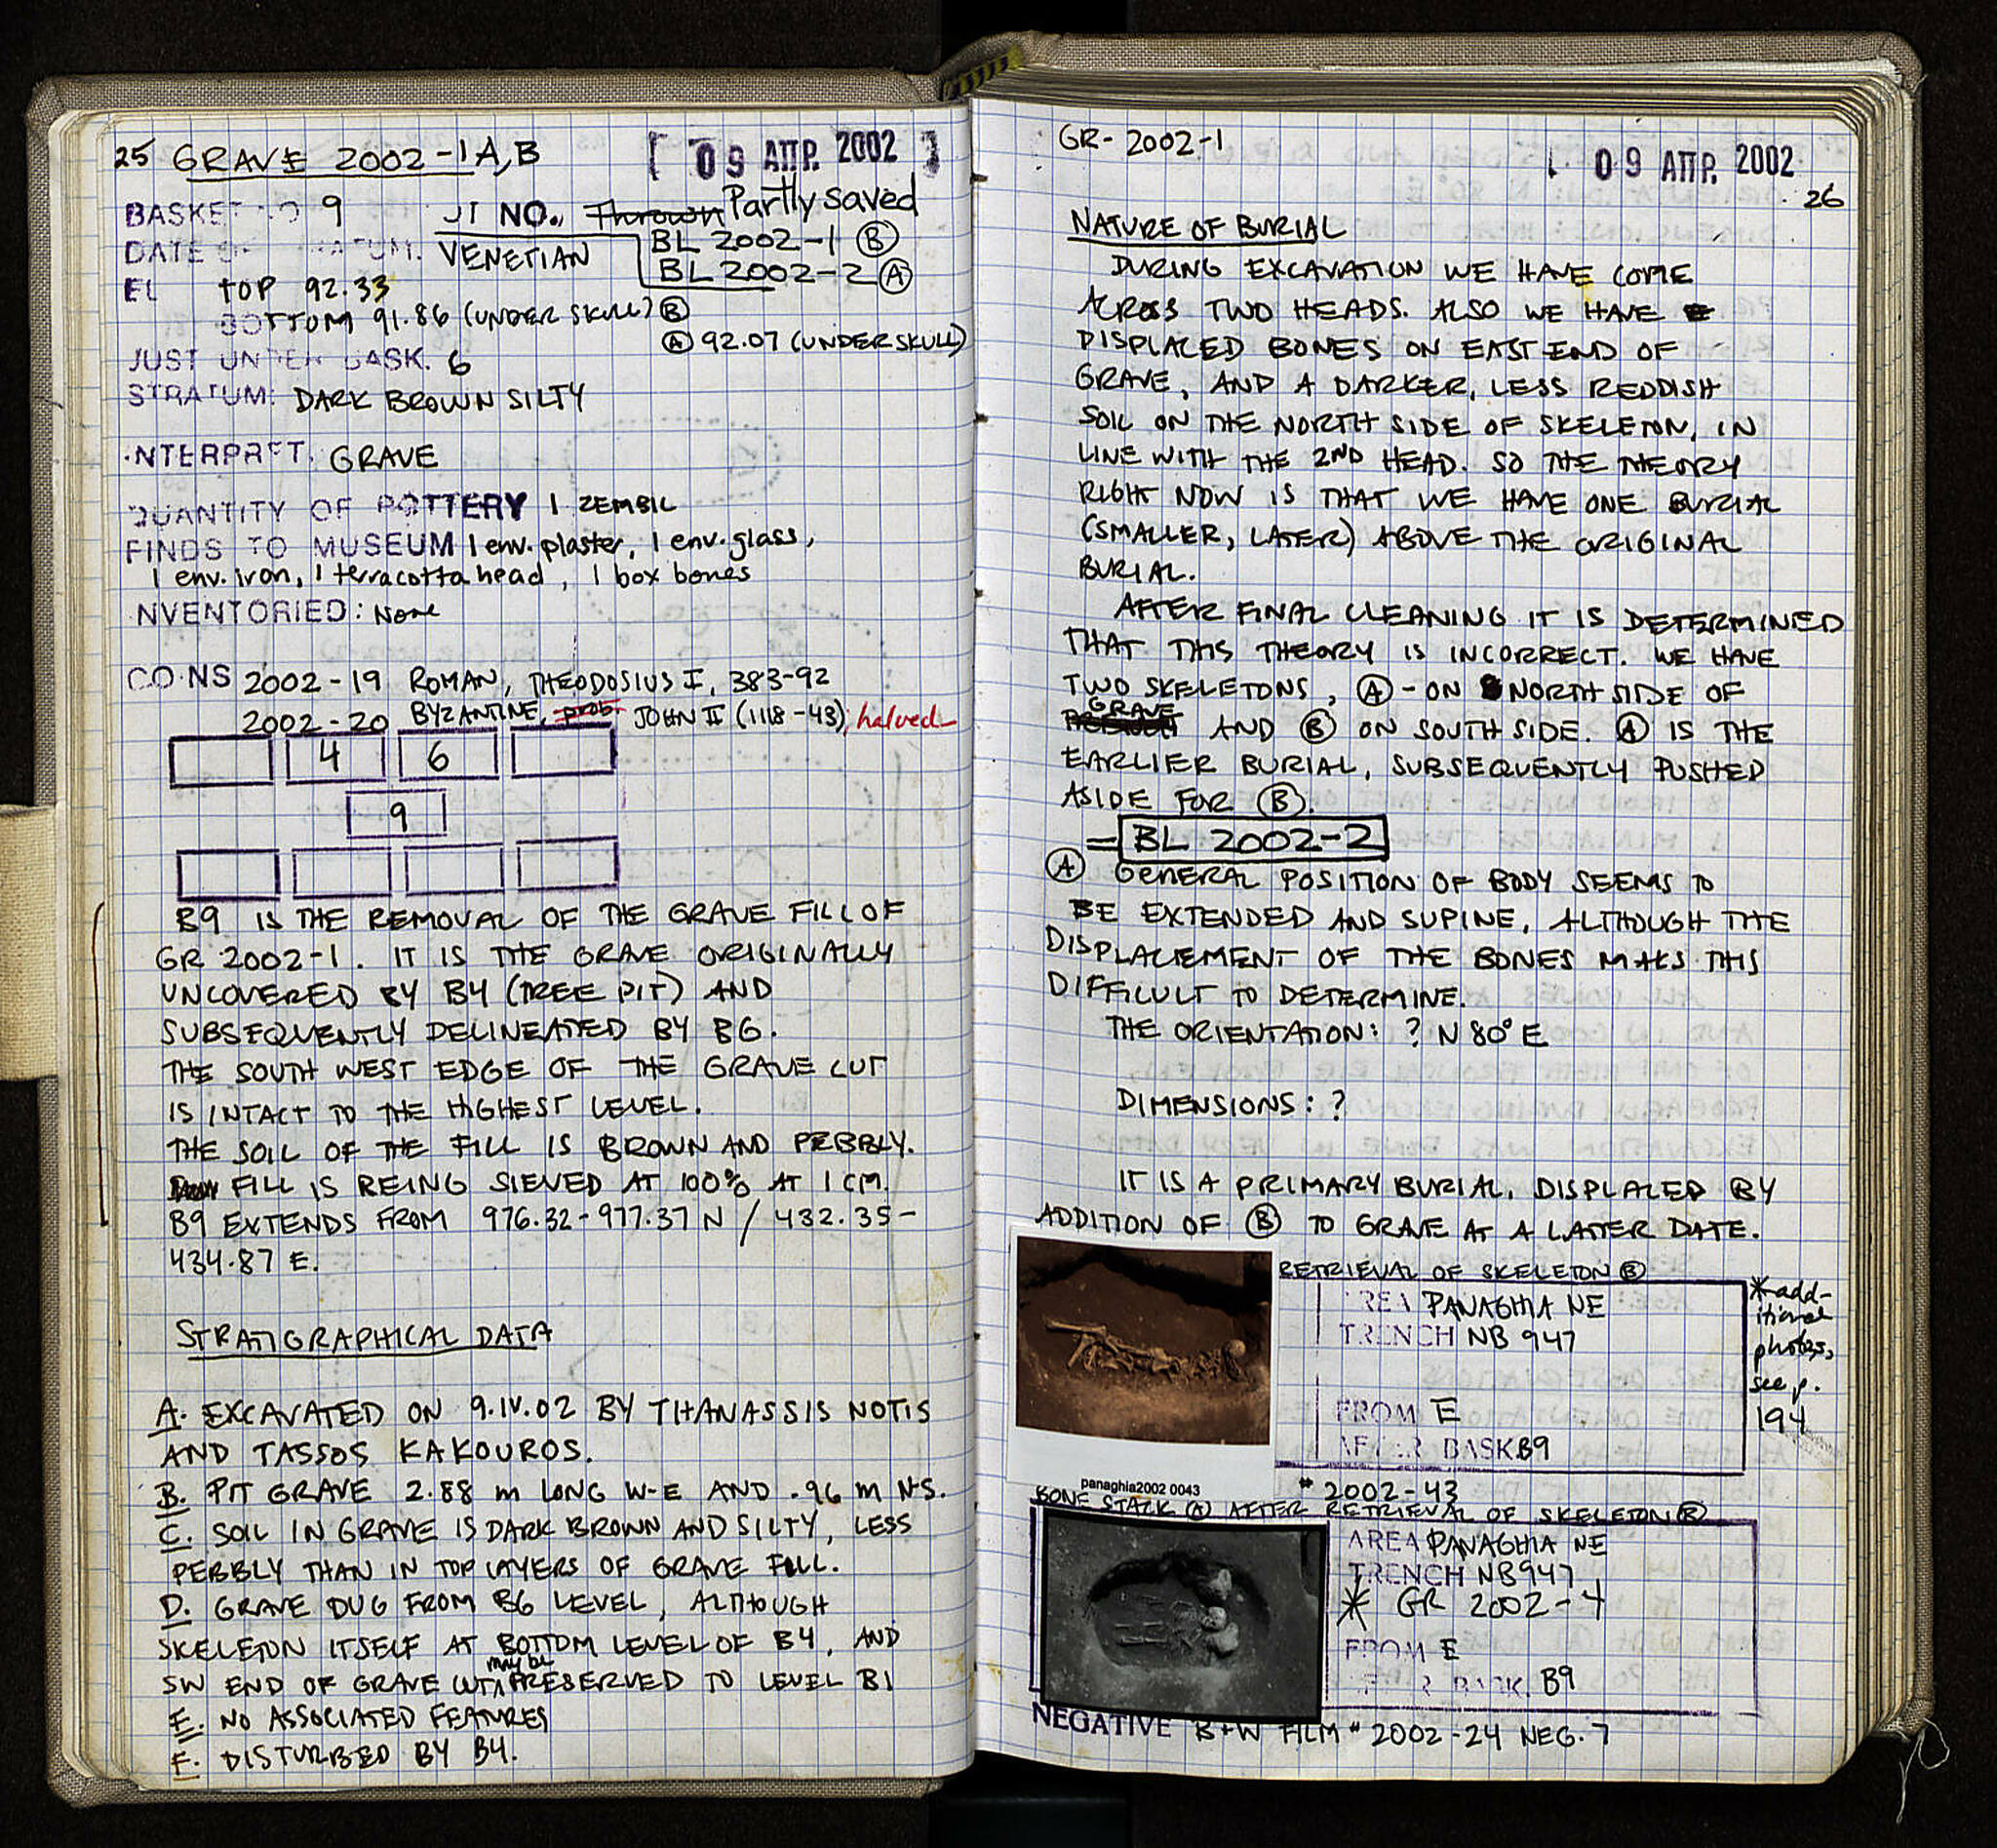 25 GRAVE 2002-1 A,B [ 09 ΑΠΡ. 2002 ]
BASKET NO 9 NO. Thrown Partly saved
VENETIAN BL 2002-1 Ⓑ
BL 2002-2 Ⓐ
EL TOP 92.33
BOTTOM 91.86 (UNDER SKULL) Ⓑ
Ⓐ 92.07 (UNDER SKULL)
JUST UNDER BASK. 6
STRATUM: DARK BROWN SILTY
INTERPRET. GRAVE
QUANTITY OF POTTERY 1 ZEMBIL
FINDS TO MUSEUM 1 env. plaster, 1 env. glass,
1 env. iron, 1 terracotta head, 1 box bones
INVENTORIED: None
COINS 2002-19 ROMAN, THEODOSIUS I, 383-92
2002-20 BYZANTINE, prob. JOHN II (1118-43), halved
4 6
9
B9 IS THE REMOVAL OF THE GRAVE FILL OF
GR 2002-1. IT IS THE GRAVE ORIGINALLY
UNCOVERED BY B4 (TREE PIT) AND
SUBSEQUENTLY DELINEATED BY B6.
THE SOUTH WEST EDGE OF THE GRAVE CUT
IS INTACT TO THE HIGHEST LEVEL.
THE SOIL OF THE FILL IS BROWN AND PEBBLY.
FILL IS BEING SIEVED AT 100% AT 1 CM.
B9 EXTENDS FROM 976.32-977.37 N / 432.35-
434.87 E.
STRATIGRAPHICAL DATA
A. EXCAVATED ON 9.IV.02 BY THANASSIS NOTIS
AND TASSOS KAKOUROS.
B. PIT GRAVE 2.88 m LONG W-E AND .96 m N-S.
C. SOIL IN GRAVE IS DARK BROWN AND SILTY, LESS
PEBBLY THAN IN TOP LAYERS OF GRAVE FILL.
D. GRAVE DUG FROM B6 LEVEL, ALTHOUGH
SKELETON ITSELF AT BOTTOM LEVEL OF B4, AND
SW END OF GRAVE CUT may be PRESERVED TO LEVEL B1
E. NO ASSOCIATED FEATURES
F. DISTURBED BY B4.
GR-2002-1 [ 09 ΑΠΡ. 2002
26
NATURE OF BURIAL
DURING EXCAVATION WE HAVE COME
ACROSS TWO HEADS. ALSO WE HAVE
DISPLACED BONES ON EAST END OF
GRAVE, AND A DARKER, LESS REDDISH
SOIL ON THE NORTH SIDE OF SKELETON, IN
LINE WITH THE 2ND HEAD. SO THE THEORY
RIGHT NOW IS THAT WE HAVE ONE BURIAL
(SMALLER, LATER) ABOVE THE ORIGINAL
BURIAL.
AFTER FINAL CLEANING IT IS DETERMINED
THAT THIS THEORY IS INCORRECT. WE HAVE
TWO SKELETONS, Ⓐ - ON NORTH SIDE OF
GRAVE AND Ⓑ ON SOUTH SIDE. Ⓐ IS THE
EARLIER BURIAL, SUBSEQUENTLY PUSHED
ASIDE FOR Ⓑ.
= BL 2002-2
Ⓐ GENERAL POSITION OF BODY SEEMS TO
BE EXTENDED AND SUPINE, ALTHOUGH THE
DISPLACEMENT OF THE BONES MAKS THIS
DIFFICULT TO DETERMINE.
THE ORIENTATION: ? N 80° E
DIMENSIONS: ?
IT IS A PRIMARY BURIAL, DISPLACED BY
ADDITION OF Ⓑ TO GRAVE AT A LATTER DATE.
RETRIEVAL OF SKELETON Ⓑ
AREA PANAGHIA NE
TRENCH NB 947
FROM E
AFTER BASK B9
* add-
itional
photos,
see p.
194
panaghia2002 0043
# 2002-43
BONE STACK Ⓐ AFTER RETRIEVAL OF SKELETON Ⓑ
AREA PANAGHIA NE
TRENCH NB947
* GR 2002-4
FROM E
BASK. B9
NEGATIVE B+W FILM # 2002-24 NEG. 7